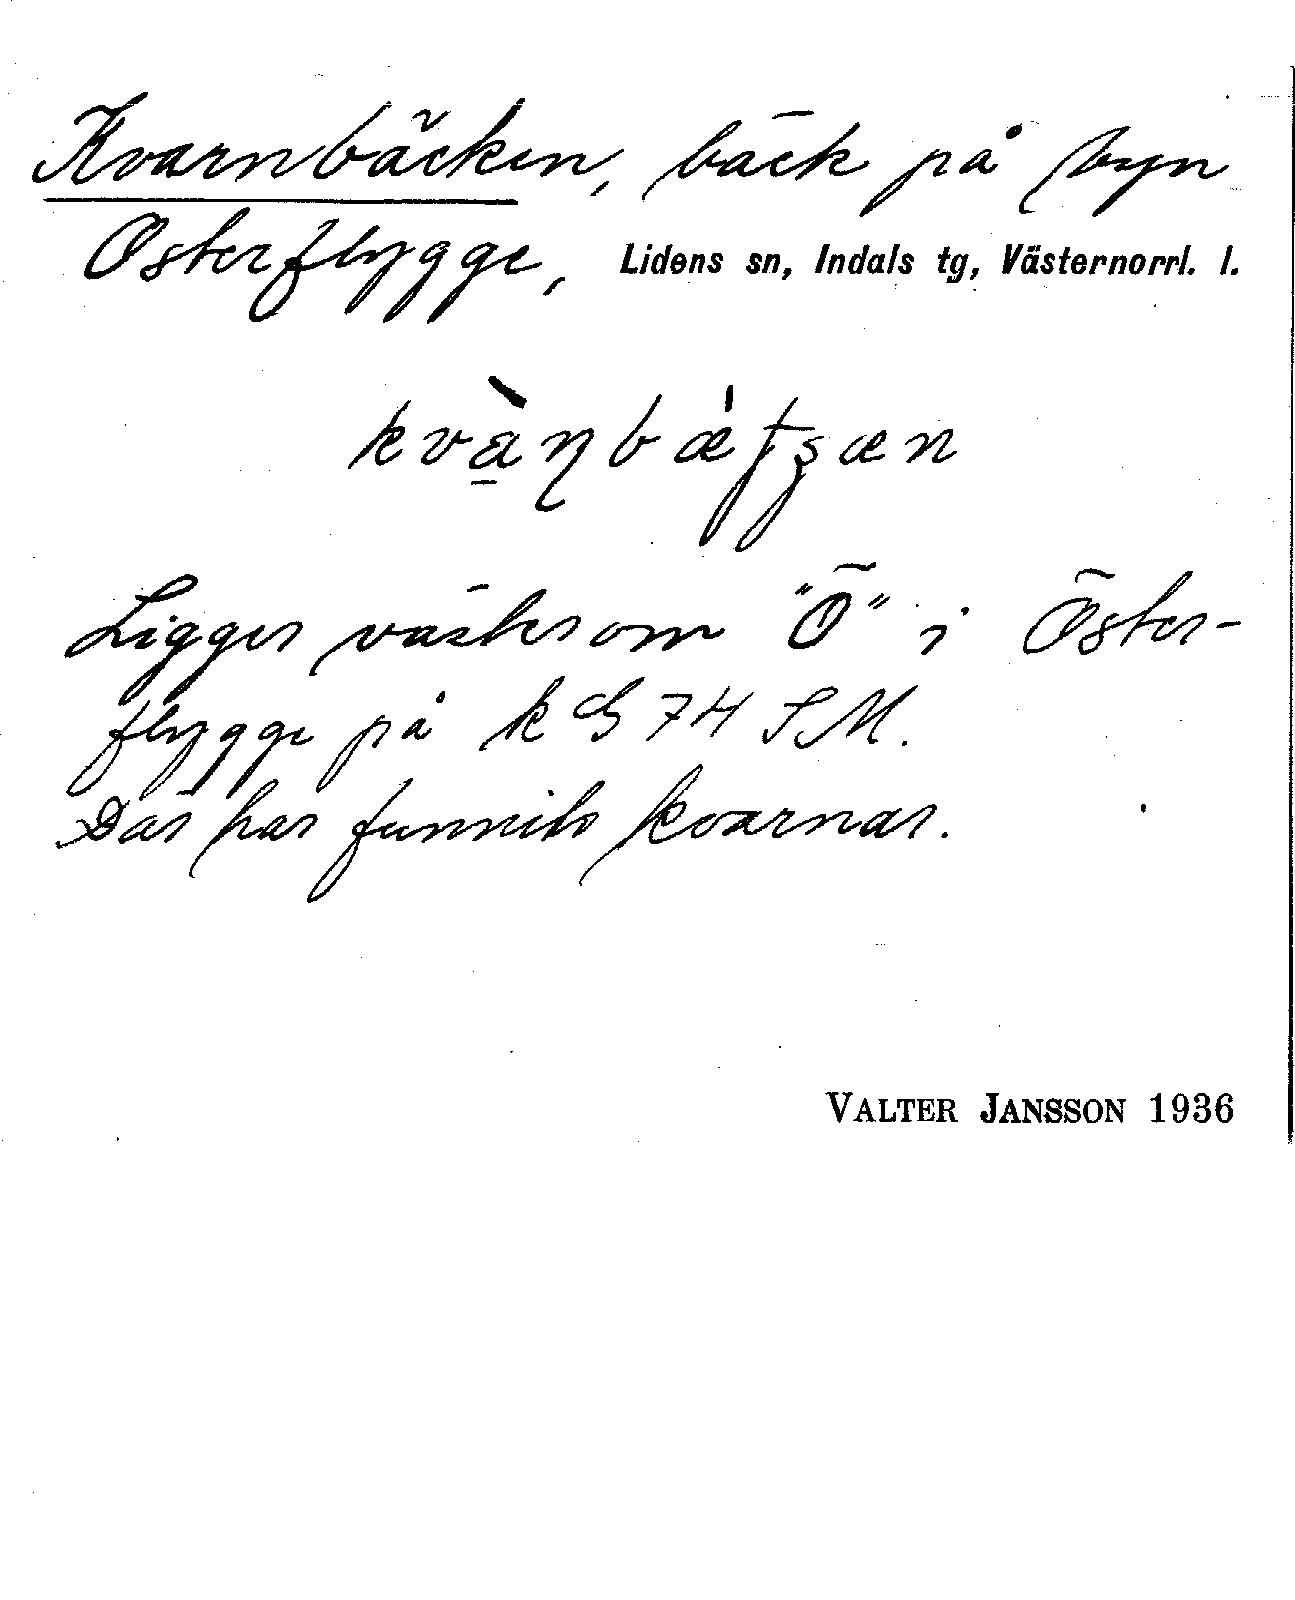 Kvarnbäcken, bäck på byn
Österflygge, Lidens sn, Indals tg, Västernorrl. l.
Ligger väster om "Ö" i Öster-
flygge på k G 74 SM.
Där har funnits kvarnar.
VALTER JANSSON 1936